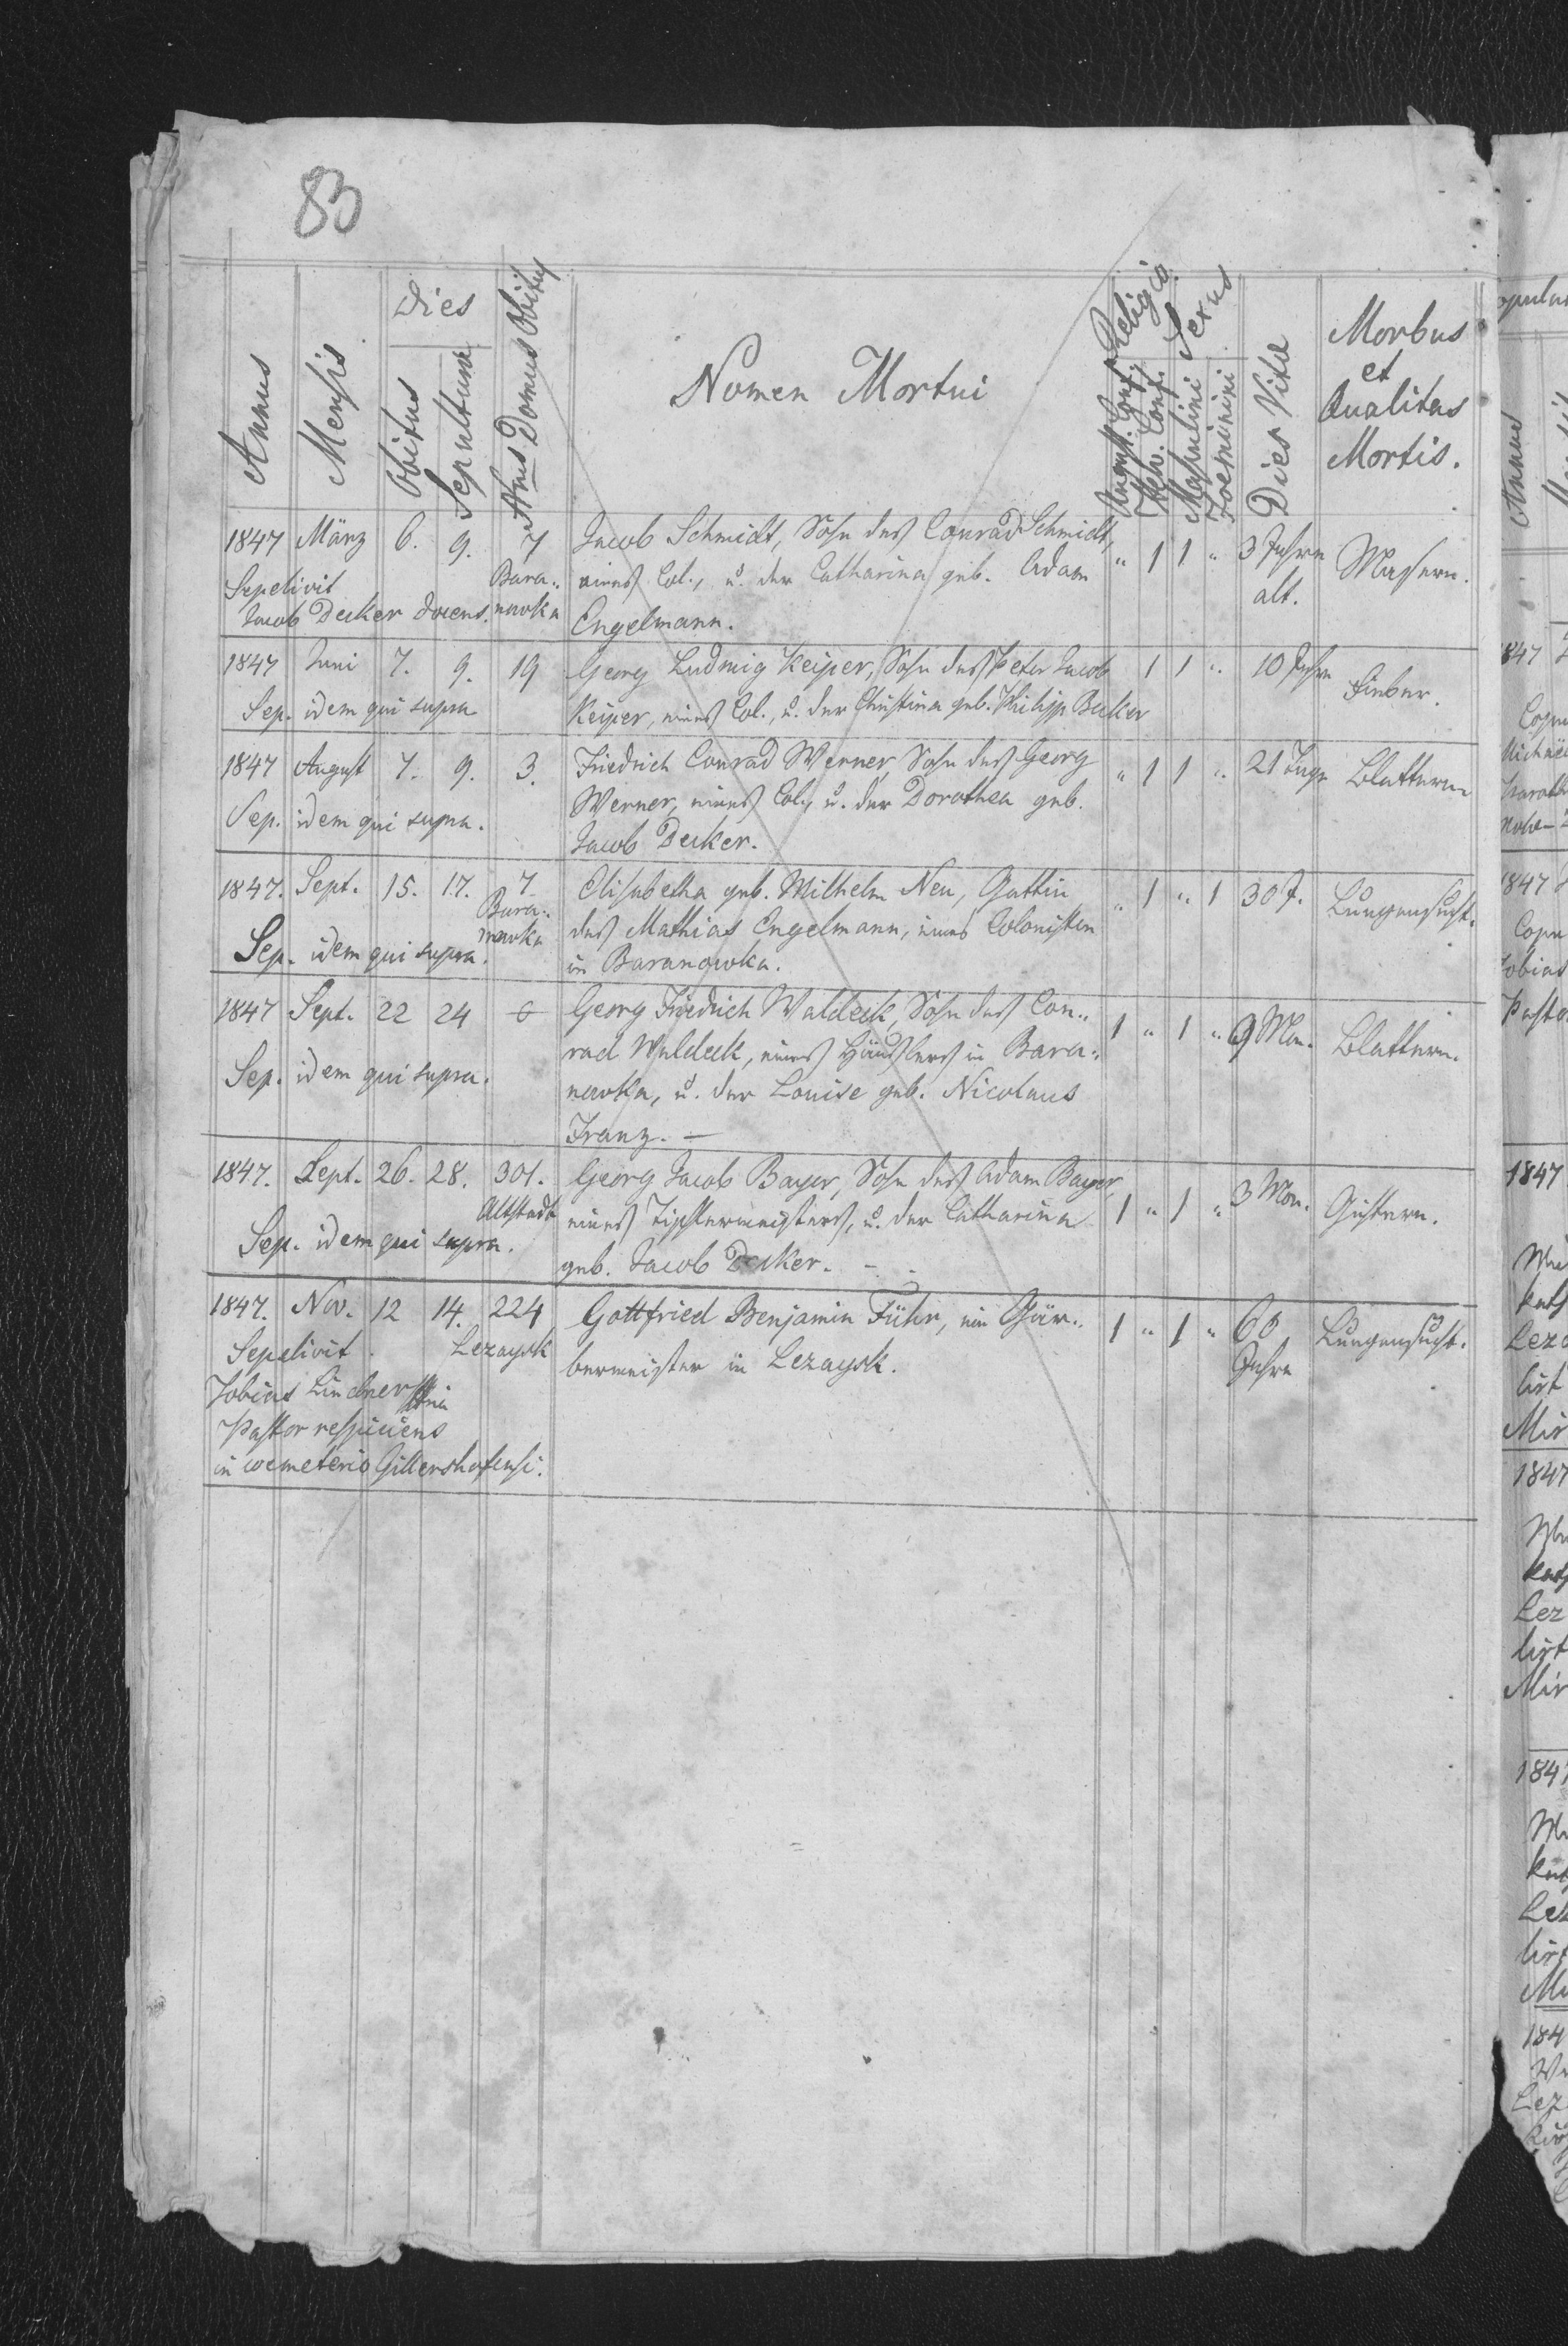 83
Dies
Annus
Mensis
Obitus
Sepulturae
Nrus Domus Obitus
Nomen Mortui
Religio
August. Conf.
Helv. Conf.
Sexus
Masculini
Foeminini
Dies Vitae
Morbus
et
Qualitas
Mortis.
1847 März 6. 9. 7 Jacob Schmidt, Sohn des Conrad Schmidt, " 1 1 " 3 Jahre Masern.
Sepelivit Bara- eines Col., u. der Catharina geb. Adam alt.
Jacob Decker docens. navka Engelmann.
1847 Juni 7. 9. 19 Georg Ludwig Keiper, Sohn des Peter Jacob 1 1 " 10 Jahre Fieber.
Sep. idem qui supra Keiper, eines Col., u. der Christina geb. Philipp Becker
1847 August 7. 9. 3. Friedrich Conrad Werner, Sohn des Georg " 1 1 " 21 Tage Blattern
Sep. idem qui supra. Werner, eines Col., u. der Dorothea geb.
Jacob Decker.
1847. Sept. 15. 17. 7 Elisabetha geb. Wilhelm Neu, Gattin " 1 " 1 30 J. Lungensucht.
Bara- des Mathias Engelmann, eines Colonisten
Sep. idem qui supra. nowka in Baranowka.
1847 Sept. 22 24 6 Georg Friedrich Waldeck, Sohn des Con- 1 " 1 " 9 Mon. Blattern.
rad Waldeck, eines Häuslers in Bara-
Sep. idem qui supra. navka, u. der Louise geb. Nicolaus
Franz. —
1847. Sept. 26. 28. 301. Georg Jacob Bayer, Sohn des Adam Bayer, 1 " 1 " 3 Mon.
Altstadt eines Tischlermeisters, u. der Catharina
Sep. idem qui supra. geb. Jacob Decker. -
1847. Nov. 12 14. 224 Gottfried Benjamin Führ, ein Gär- 1 " 1 " 60 Lungensucht.
Sepelivit Lezaysk bermeister in Lezaysk. Jahre
Tobias Lindner
Pastor respiciens
in coemeterio Gillershofensi.
Annus
1847
1847
1847
1847